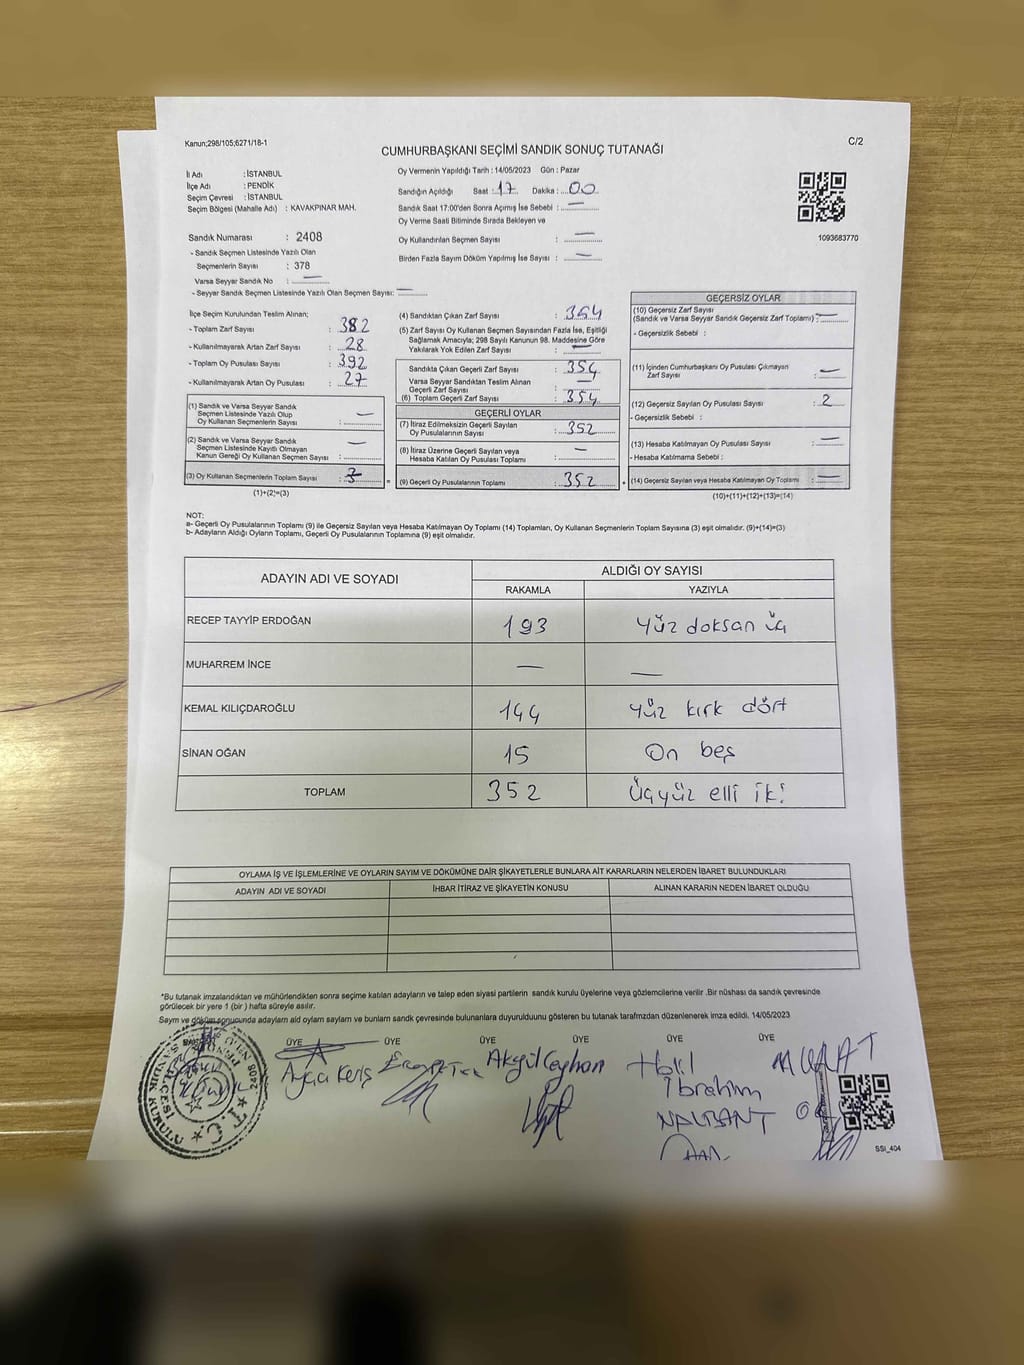 Kanun;298/105;6271/18-1
C/2
CUMHURBAŞKANI SEÇİMİ SANDIK SONUÇ TUTANAĞI
İl Adı : İSTANBUL
İlçe Adı : PENDİK
Seçim Çevresi : İSTANBUL
Seçim Bölgesi (Mahalle Adı) : KAVAKPINAR MAH.
Oy Vermenin Yapıldığı Tarih : 14/05/2023 Gün : Pazar
Sandığın Açıldığı Saat : 17 Dakika : 00
Sandık Saat 17:00'den Sonra Açılmış İse Sebebi : —
Oy Verme Saati Bitiminde Sırada Bekleyen ve
Oy Kullandırılan Seçmen Sayısı : —
Birden Fazla Sayım Döküm Yapılmış İse Sayısı : —
1093683770
Sandık Numarası : 2408
- Sandık Seçmen Listesinde Yazılı Olan
Seçmenlerin Sayısı : 378
Varsa Seyyar Sandık No : —
- Seyyar Sandık Seçmen Listesinde Yazılı Olan Seçmen Sayısı: —
İlçe Seçim Kurulundan Teslim Alınan;
- Toplam Zarf Sayısı : 382
- Kullanılmayarak Artan Zarf Sayısı : 28
- Toplam Oy Pusulası Sayısı : 392
- Kullanılmayarak Artan Oy Pusulası : 27
(1) Sandık ve Varsa Seyyar Sandık
Seçmen Listesinde Yazılı Olup
Oy Kullanan Seçmenlerin Sayısı : —
(2) Sandık ve Varsa Seyyar Sandık
Seçmen Listesinde Kayıtlı Olmayan
Kanun Gereği Oy Kullanan Seçmen Sayısı : —
(3) Oy Kullanan Seçmenlerin Toplam Sayısı :
(1)+(2)=(3)
(4) Sandıktan Çıkan Zarf Sayısı : 354
(5) Zarf Sayısı Oy Kullanan Seçmen Sayısından Fazla İse, Eşitliği
Sağlamak Amacıyla; 298 Sayılı Kanunun 98. Maddesine Göre
Yakılarak Yok Edilen Zarf Sayısı : —
Sandıkta Çıkan Geçerli Zarf Sayısı : 354
Varsa Seyyar Sandıktan Teslim Alınan
Geçerli Zarf Sayısı : —
(6) Toplam Geçerli Zarf Sayısı : 354
GEÇERLİ OYLAR
(7) İtiraz Edilmeksizin Geçerli Sayılan
Oy Pusulalarının Sayısı : 352
(8) İtiraz Üzerine Geçerli Sayılan veya
Hesaba Katılan Oy Pusulası Toplamı : —
(9) Geçerli Oy Pusulalarının Toplamı : 352
GEÇERSİZ OYLAR
(10) Geçersiz Zarf Sayısı
(Sandık ve Varsa Seyyar Sandık Geçersiz Zarf Toplamı) : —
- Geçersizlik Sebebi :
(11) İçinden Cumhurbaşkanı Oy Pusulası Çıkmayan
Zarf Sayısı : —
(12) Geçersiz Sayılan Oy Pusulası Sayısı : 2
- Geçersizlik Sebebi :
(13) Hesaba Katılmayan Oy Pusulası Sayısı : —
- Hesaba Katılmama Sebebi :
(14) Geçersiz Sayılan veya Hesaba Katılmayan Oy Toplamı : —
(10)+(11)+(12)+(13)=(14)
NOT:
a- Geçerli Oy Pusulalarının Toplamı (9) ile Geçersiz Sayılan veya Hesaba Katılmayan Oy Toplamı (14) Toplamları, Oy Kullanan Seçmenlerin Toplam Sayısına (3) eşit olmalıdır. (9)+(14)=(3)
b- Adayların Aldığı Oyların Toplamı, Geçerli Oy Pusulalarının Toplamına (9) eşit olmalıdır.
ADAYIN ADI VE SOYADI ALDIĞI OY SAYISI
RAKAMLA YAZIYLA
RECEP TAYYİP ERDOĞAN 193 Yüz doksan üç
MUHARREM İNCE — —
KEMAL KILIÇDAROĞLU 144 Yüz kırk dört
SİNAN OĞAN 15 On beş
TOPLAM 352 Üçyüz elli iki
OYLAMA İŞ VE İŞLEMLERİNE VE OYLARIN SAYIM VE DÖKÜMÜNE DAİR ŞİKAYETLERLE BUNLARA AİT KARARLARIN NELERDEN İBARET BULUNDUKLARI
ADAYIN ADI VE SOYADI İHBAR İTİRAZ VE ŞİKAYETİN KONUSU ALINAN KARARIN NEDEN İBARET OLDUĞU
*Bu tutanak imzalandıktan ve mühürlendikten sonra seçime katılan adayların ve talep eden siyasi partilerin sandık kurulu üyelerine veya gözlemcilerine verilir .Bir nüshası da sandık çevresinde
görülecek bir yere 1 (bir ) hafta süreyle asılır.
Sayım ve döküm sonucunda adayların aldı oyların sayların ve bunların sandk çevresinde bulunanlara duyurulduunu gösteren bu tutanak tarafmzdan düzenlenerek imza edildi. 14/05/2023
ÜYE ÜYE ÜYE ÜYE ÜYE ÜYE
Akgül Ceyhan
Halil
İbrahim
NALBANT
MURAT
T.C.
2408
SSI_404